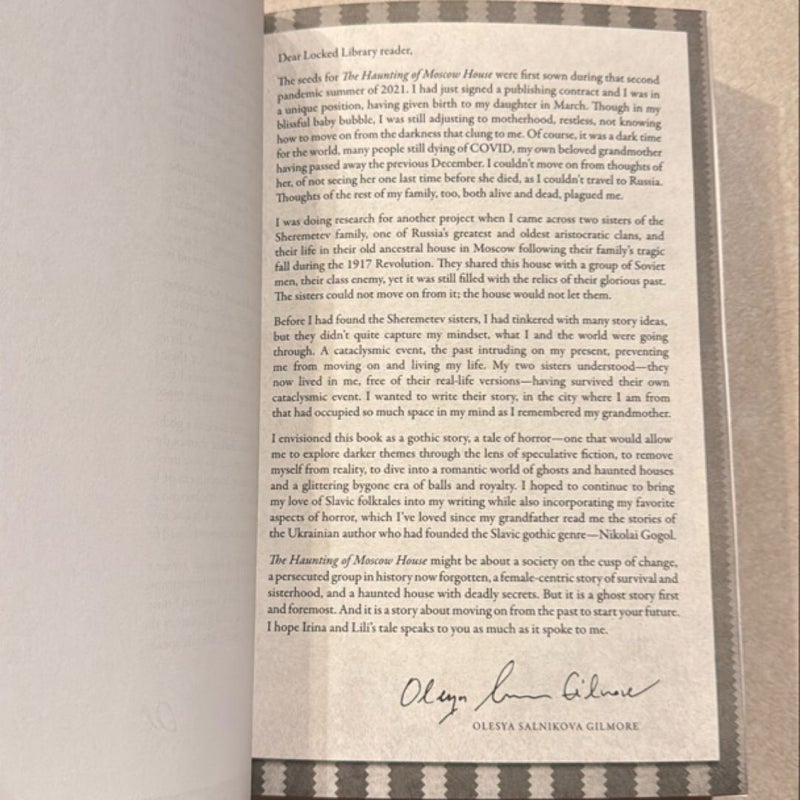 Dear Locked Library reader,
The seeds for The Haunting of Moscow House were first sown during that second
pandemic summer of 2021. I had just signed a publishing contract and I was in
a unique position, having given birth to my daughter in March. Though in my
blissful baby bubble, I was still adjusting to motherhood, restless, not knowing
how to move on from the darkness that clung to me. Of course, it was a dark time
for the world, many people still dying of COVID, my own beloved grandmother
having passed away the previous December. I couldn't move on from thoughts of
her, of not seeing her one last time before she died, as I couldn't travel to Russia.
Thoughts of the rest of my family, too, both alive and dead, plagued me.
I was doing research for another project when I came across two sisters of the
Sheremetev family, one of Russia's greatest and oldest aristocratic clans, and
their life in their old ancestral house in Moscow following their family's tragic
fall during the 1917 Revolution. They shared this house with a group of Soviet
men, their class enemy, yet it was still filled with the relics of their glorious past.
The sisters could not move on from it; the house would not let them.
Before I had found the Sheremetev sisters, I had tinkered with many story ideas,
but they didn't quite capture my mindset, what I and the world were going
through. A cataclysmic event, the past intruding on my present, preventing
me from moving on and living my life. My two sisters understood—they
now lived in me, free of their real-life versions—having survived their own
cataclysmic event. I wanted to write their story, in the city where I am from
that had occupied so much space in my mind as I remembered my grandmother.
I envisioned this book as a gothic story, a tale of horror—one that would allow
me to explore darker themes through the lens of speculative fiction, to remove
myself from reality, to dive into a romantic world of ghosts and haunted houses
and a glittering bygone era of balls and royalty. I hoped to continue to bring
my love of Slavic folktales into my writing while also incorporating my favorite
aspects of horror, which I've loved since my grandfather read me the stories of
the Ukrainian author who had founded the Slavic gothic genre—Nikolai Gogol.
The Haunting of Moscow House might be about a society on the cusp of change,
a persecuted group in history now forgotten, a female-centric story of survival and
sisterhood, and a haunted house with deadly secrets. But it is a ghost story first
and foremost. And it is a story about moving on from the past to start your future.
I hope Irina and Lili's tale speaks to you as much as it spoke to me.
Olesya Gilmore
OLESYA SALNIKOVA GILMORE